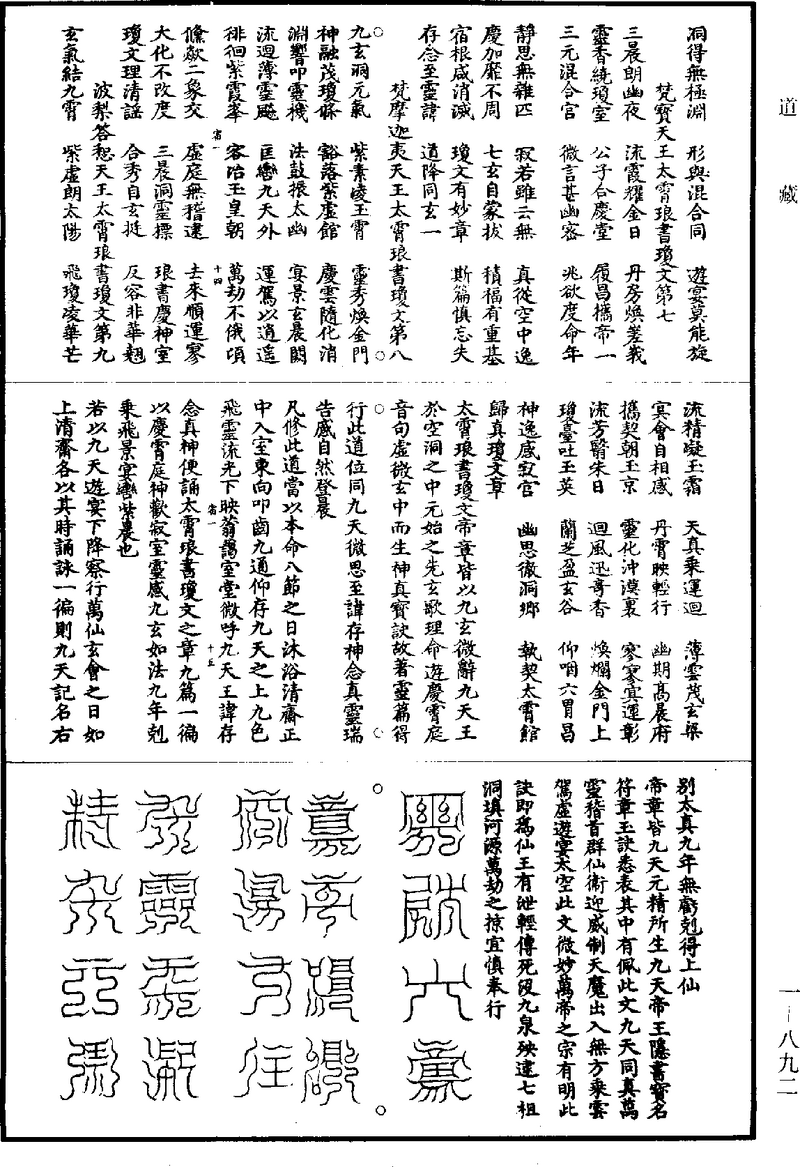 道藏
洞得無極淵　形與混合同　遊宴莫能旋
梵寶天王太霄琅書瓊文第七
三晨朗幽夜　流霞耀金日　丹房煥嵳峩
靈香繞瓊室　公子合慶堂　履昌攜帝一
三元混合宮　微言甚幽密　兆欲度命年
靜思無雜匹　寂若雖云無　真從空中逸
慶加靡不周　七玄自蒙拔　積福有重基
宿根咸消滅　瓊文有妙章　斯篇慎忘失
存念至靈諱　道降同玄一
梵摩迦夷天王太霄琅書瓊文第八
九玄炳元氣　紫素崚玉霄　靈秀煥金門
神融茂瓊條　豁落紫虛館　慶雲隨化消
淵響叩靈機　法鼓振太幽　宴景玄晨闕
流迴薄靈飈　匡轡九天外　運駕以逍遥
徘徊紫霞峯　容冶玉皇朝　萬劫不俄頃
省一　十四
儵歘二象交　虛庭無稽違　去來順運寥
大化不改度　三晨洞靈標　琅書慶神室
瓊文理清謡　合秀自玄挺　反容非華翹
波梨答恕天王太霄琅書瓊文第九
玄氣結九霄　紫虛朗太陽　飛瓊凌華芒
流精凝玉霜　天真乘運迴　薄雲茂玄梁
冥會自相感　丹霄映輕行　幽期髙晨府
攜契朝玉京　靈化沖漠裏　寥寥冥運彰
流芳翳朱日　迴風迅竒香　煥爛金門上
瓊臺吐玉英　蘭芝盈玄谷　仰咽六胃昌
神逸感寂宮　幽思徹洞鄉　執契太霄館
歸真瓊文章
太霄琅書瓊文帝章皆以九玄微辭九天王
於空洞之中元始之先玄歌理命遊慶霄庭
音句虛微玄中而生神真寶訣故著靈篇得
行此道位同九天微思至諱存神念真靈瑞
告感自然登晨
凡修此道當以本命八節之日沐浴清齋正
中入室東向叩齒九通仰存九天之上九色
飛靈流光下映蓊藹室堂微呼九天王諱存
省一　十五
念真神便誦太霄琅書瓊文之章九篇一徧
以慶霄庭神歡寂室靈感九玄如法九年剋
乘飛景宴轡紫晨也
若以九天遊宴下降察行萬仙玄會之日如
上清齋各以其時誦詠一徧則九天記名右
別太真九年無虧剋得上仙
帝章皆九天元精所生九天帝王隱書寶名
符章玉訣悉表其中有佩此文九天同真萬
靈稽首群仙衛迎威制天魔出入無方乘雲
駕虛遊宴太空此文微妙萬帝之宗有明此
訣即為仙王有泄輕傳死役九泉殃逮七祖
洞填河源萬劫之掠宜慎奉行
一—八九二